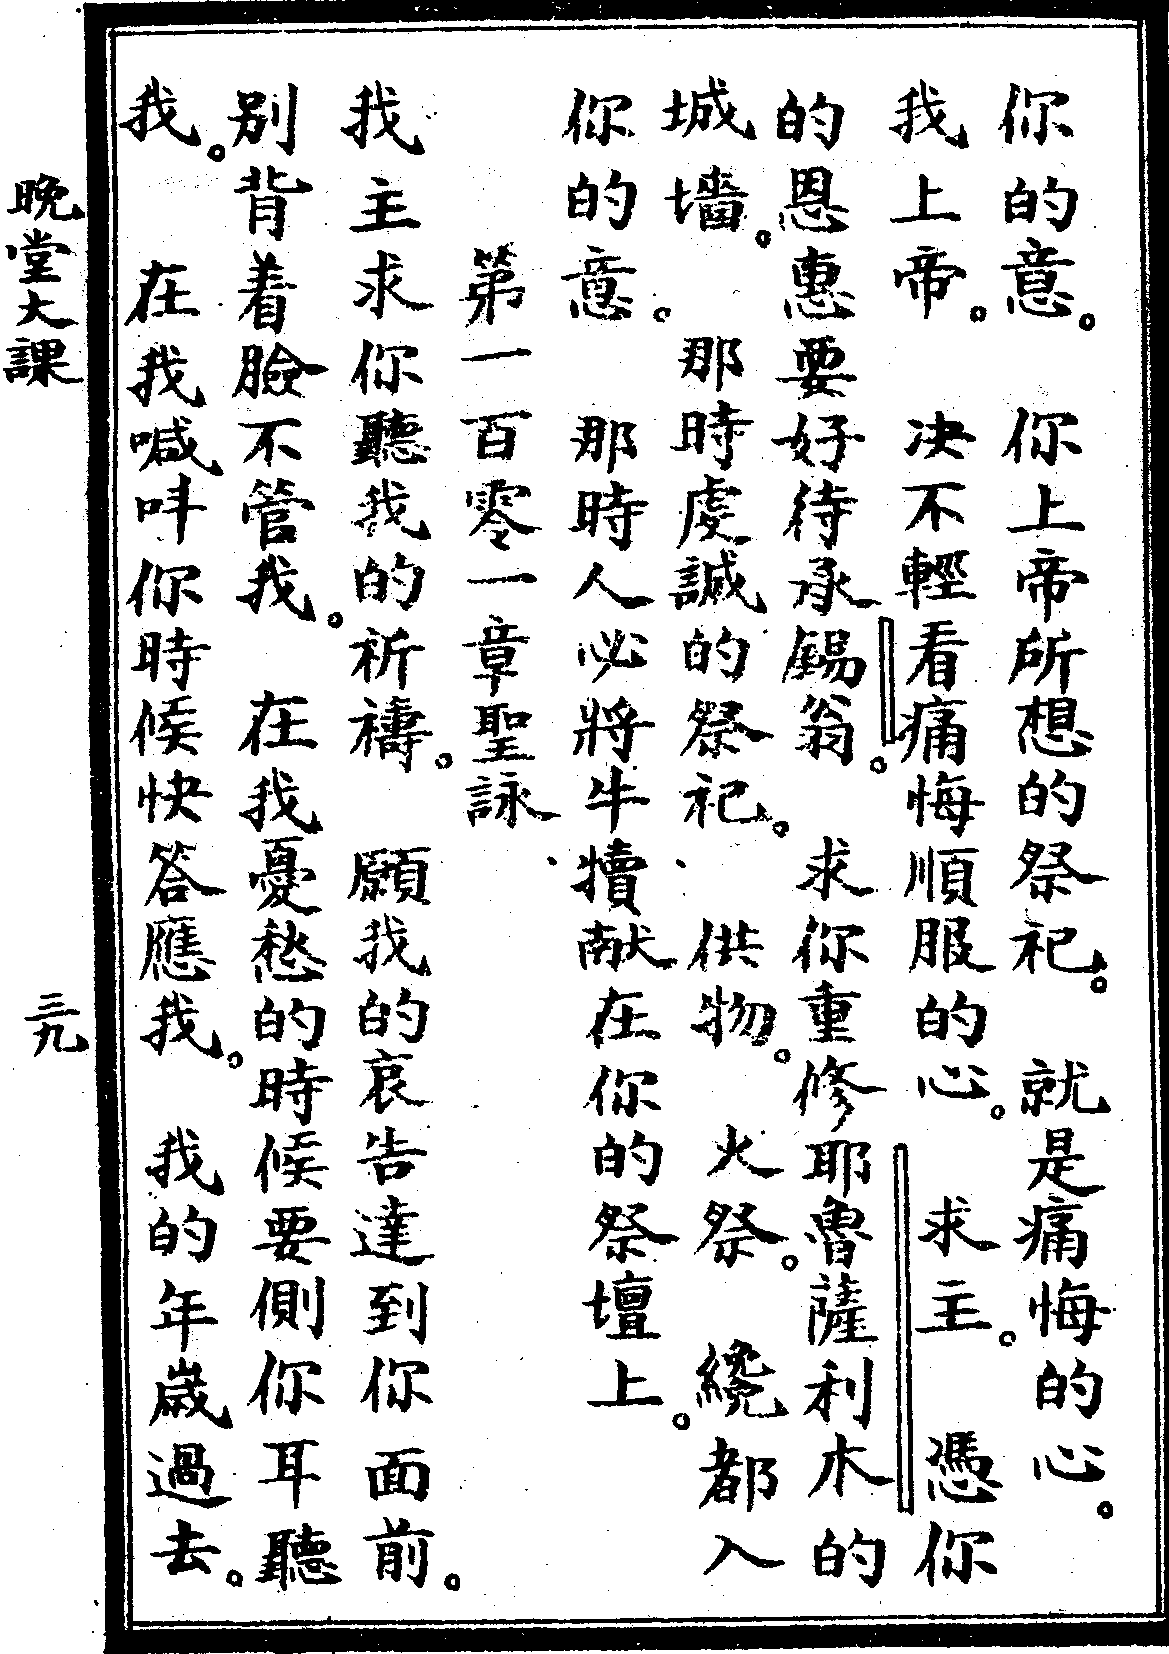 你的意。　你上帝所想的祭祀。　就是痛悔的心。
我上帝。　决不輕看痛悔順服的心。　求主。　憑你
的恩惠要好待承錫翁。　求你重修耶魯薩利木的
城墻。　那時虔誠的祭祀。　供物。　火祭。　纔都入
你的意。　那時人必將牛犢献在你的祭壇上。
第一百零一章聖詠
我主求你聽我的祈禱。　願我的哀告達到你面前。
别背着臉不管我。　在我憂愁的時候要側你耳聽
我。　在我喊呌你時候快答應我。　我的年歲過去。
晩堂大課
三九